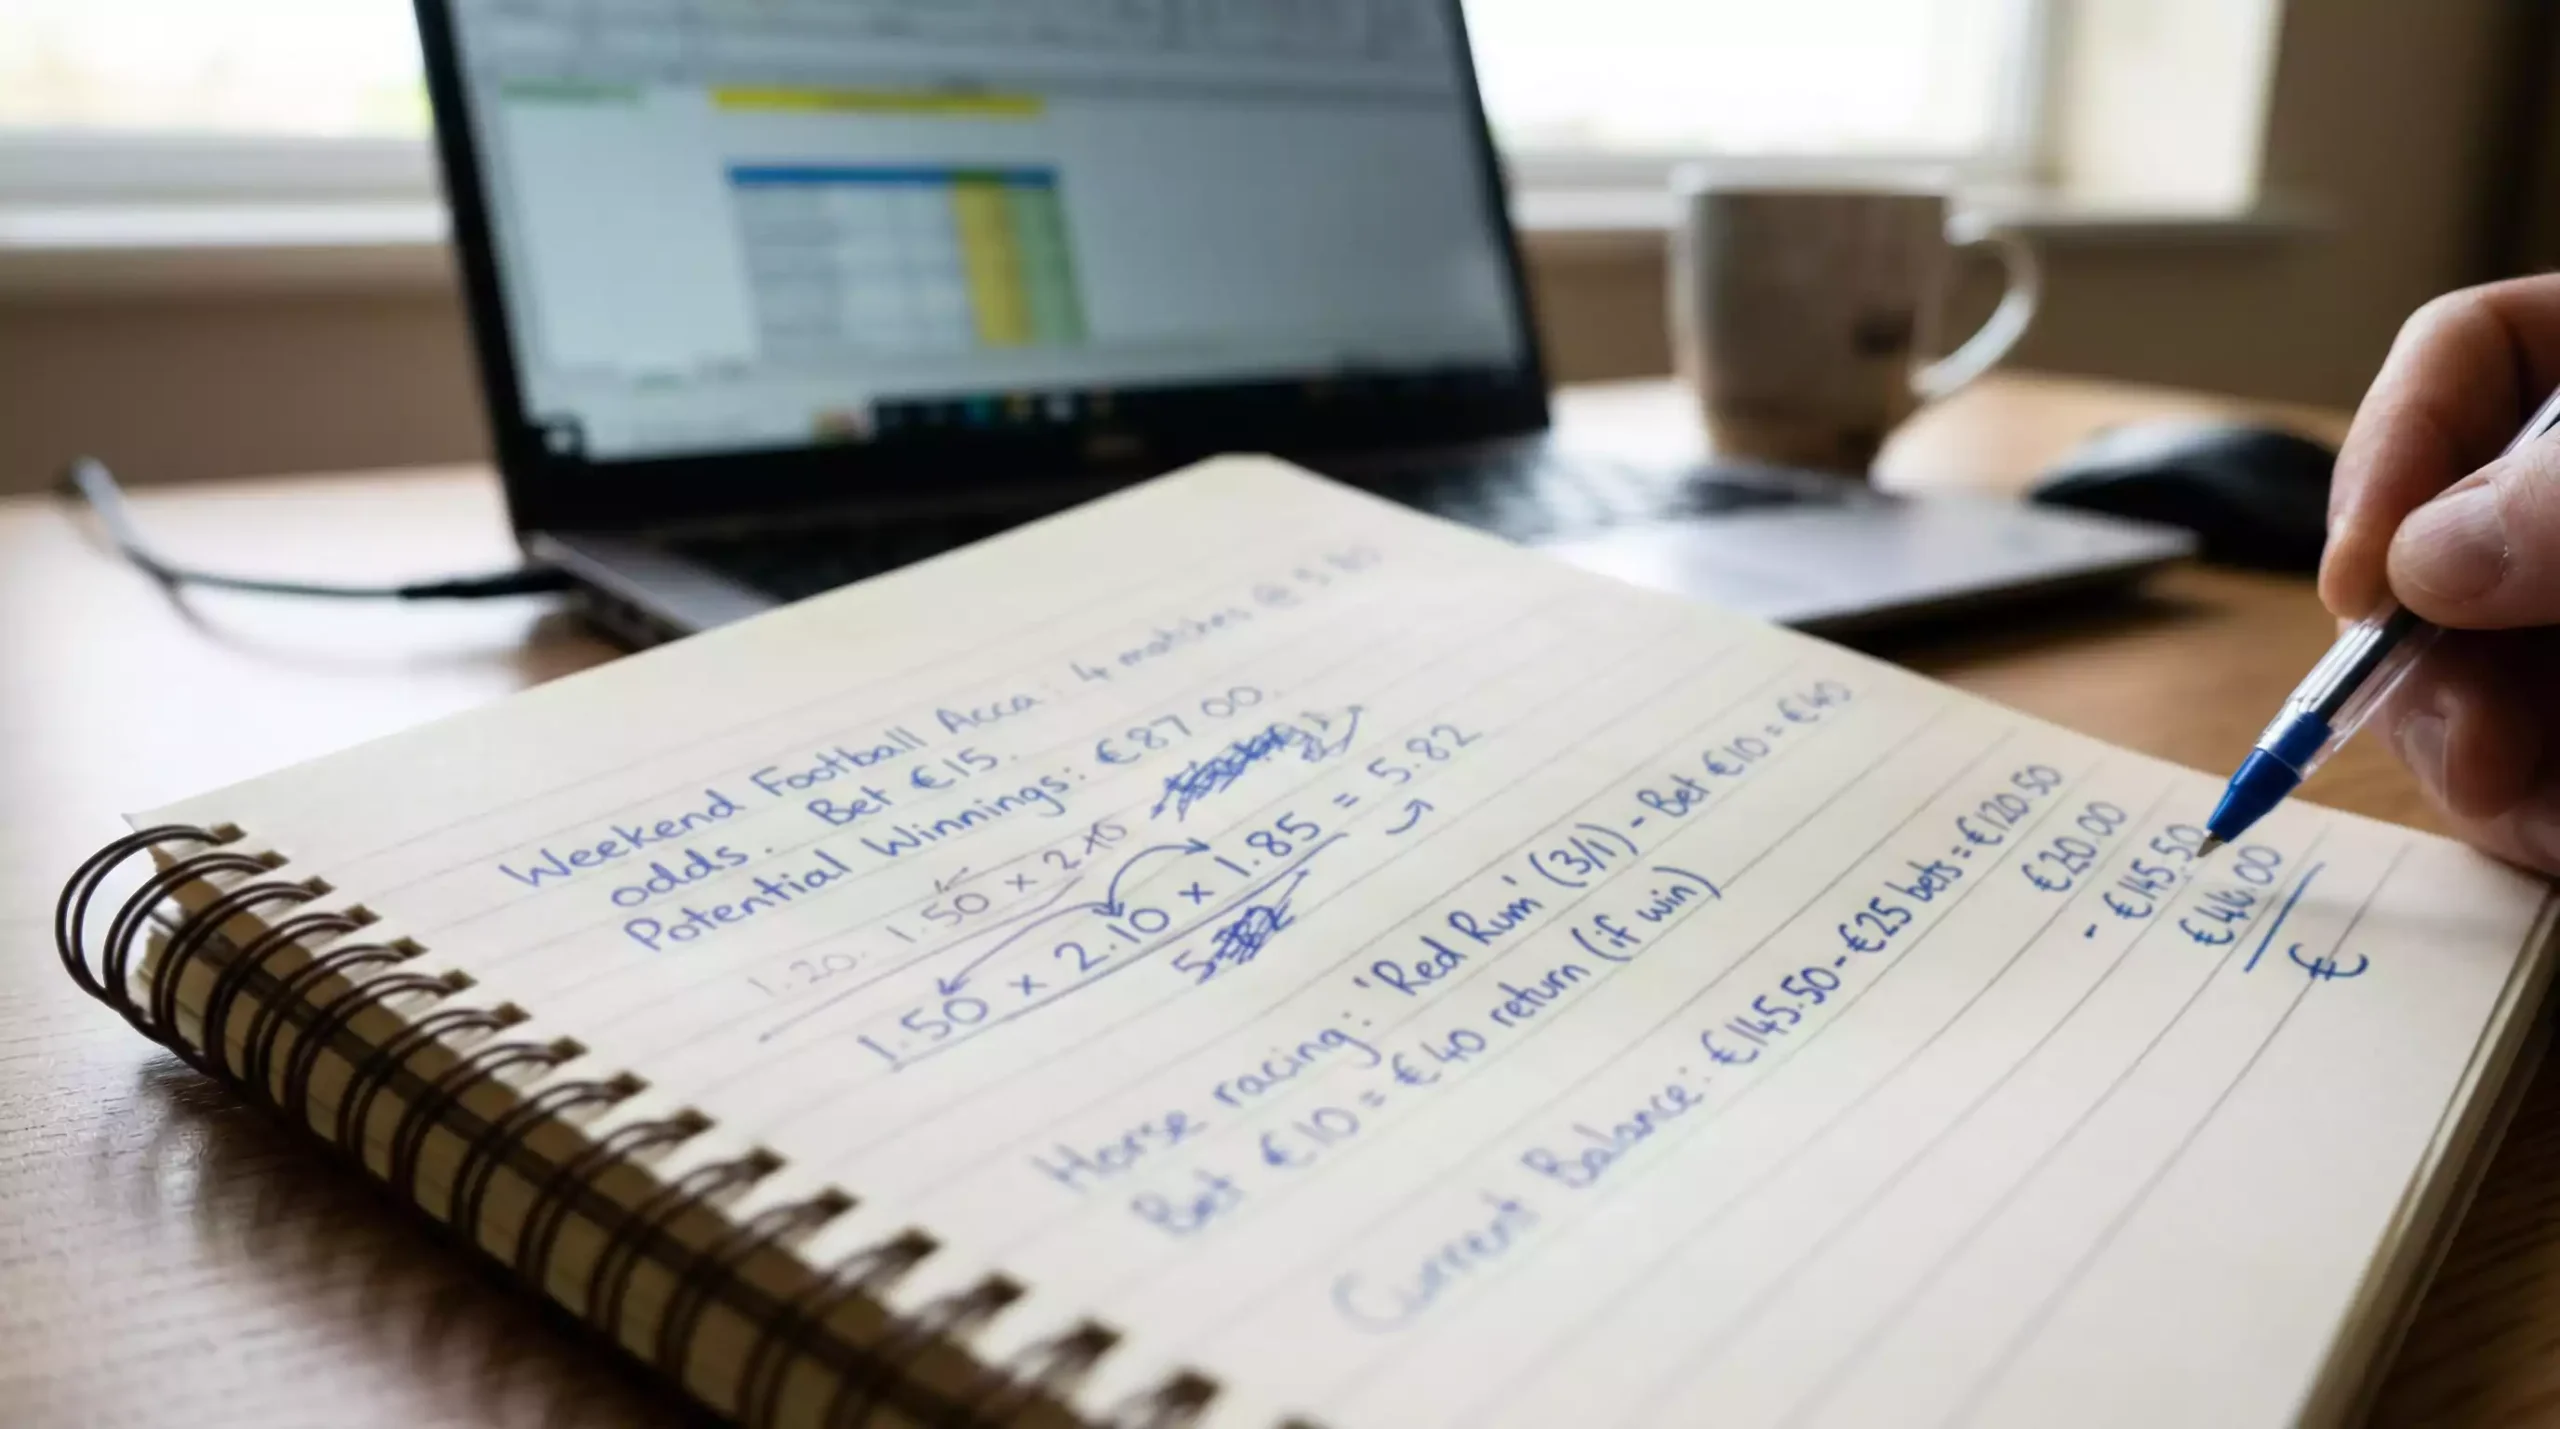 Weekend Football Acca: 4 matches @ 5.80
odds. Bet €15.
Potential Winnings: €87.00
1.20. 1.50 × 2.10
1.50 × 2.10 × 1.85 = 5.82
Horse racing: 'Red Rum' (3/1) - Bet €10 = €40
Bet €10 = €40 return (if win)
Current Balance: €145.50 - €25 bets = €120.50
€20.00
- €145.50
€44.00
€